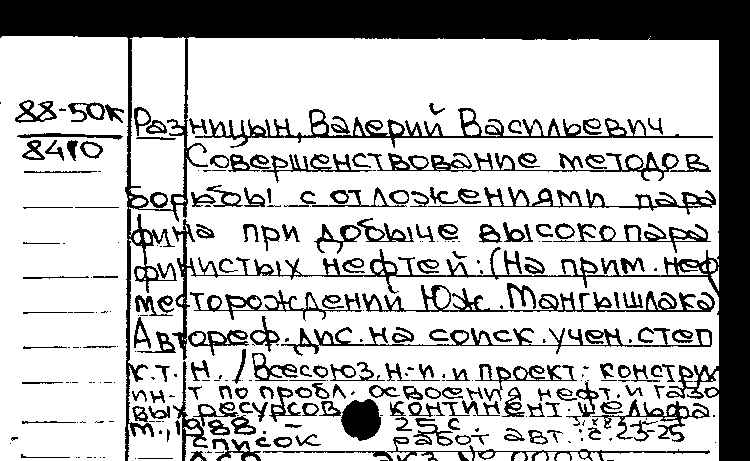 88-50К
8410
Разницын, Валерий Васильевич.
Совершенствование методов
борьбы с отложениями пара
фина при добыче высокопара
финистых нефтей: (На прим. неф
месторождений Юж. Мангышлака
Автореф. дис. на соиск. учен. степ
к.т.н. / Всесоюз. н.-и. и проект.-конструк
ин-т по пробл. освоения нефт. и газо
вых ресурсов континент. шельфа.
М., 1988. - 25 с.
список работ авт.: с. 23-25
экз №